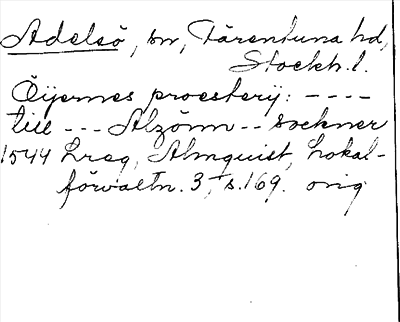 Adelsö, sn, Färentuna hd,
Stockh. l.
Öijernes proesterij: ----
till --- Alzönn -- sockner
1544 Lreg, Almquist, Lokal-
förvaltn. 3, s. 169. orig